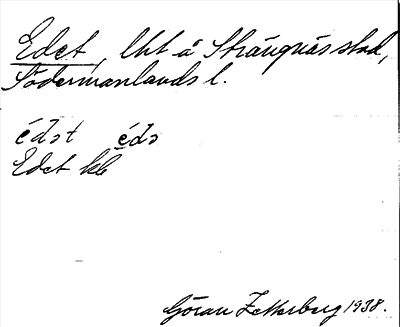 Edet, lht å Strängnäs stad,
Södermanlands l.
édət édə
Edet kb
Göran Zetterberg 1938.